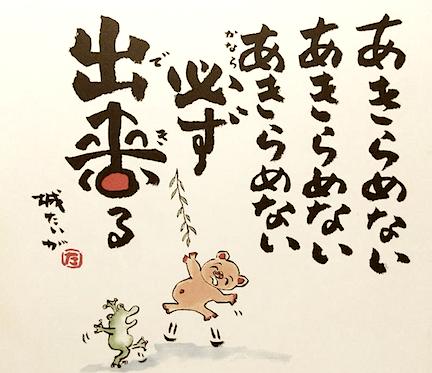 あきらめない
あきらめない
あきらめない
必ず
かなら
出来る
でき
城たいが